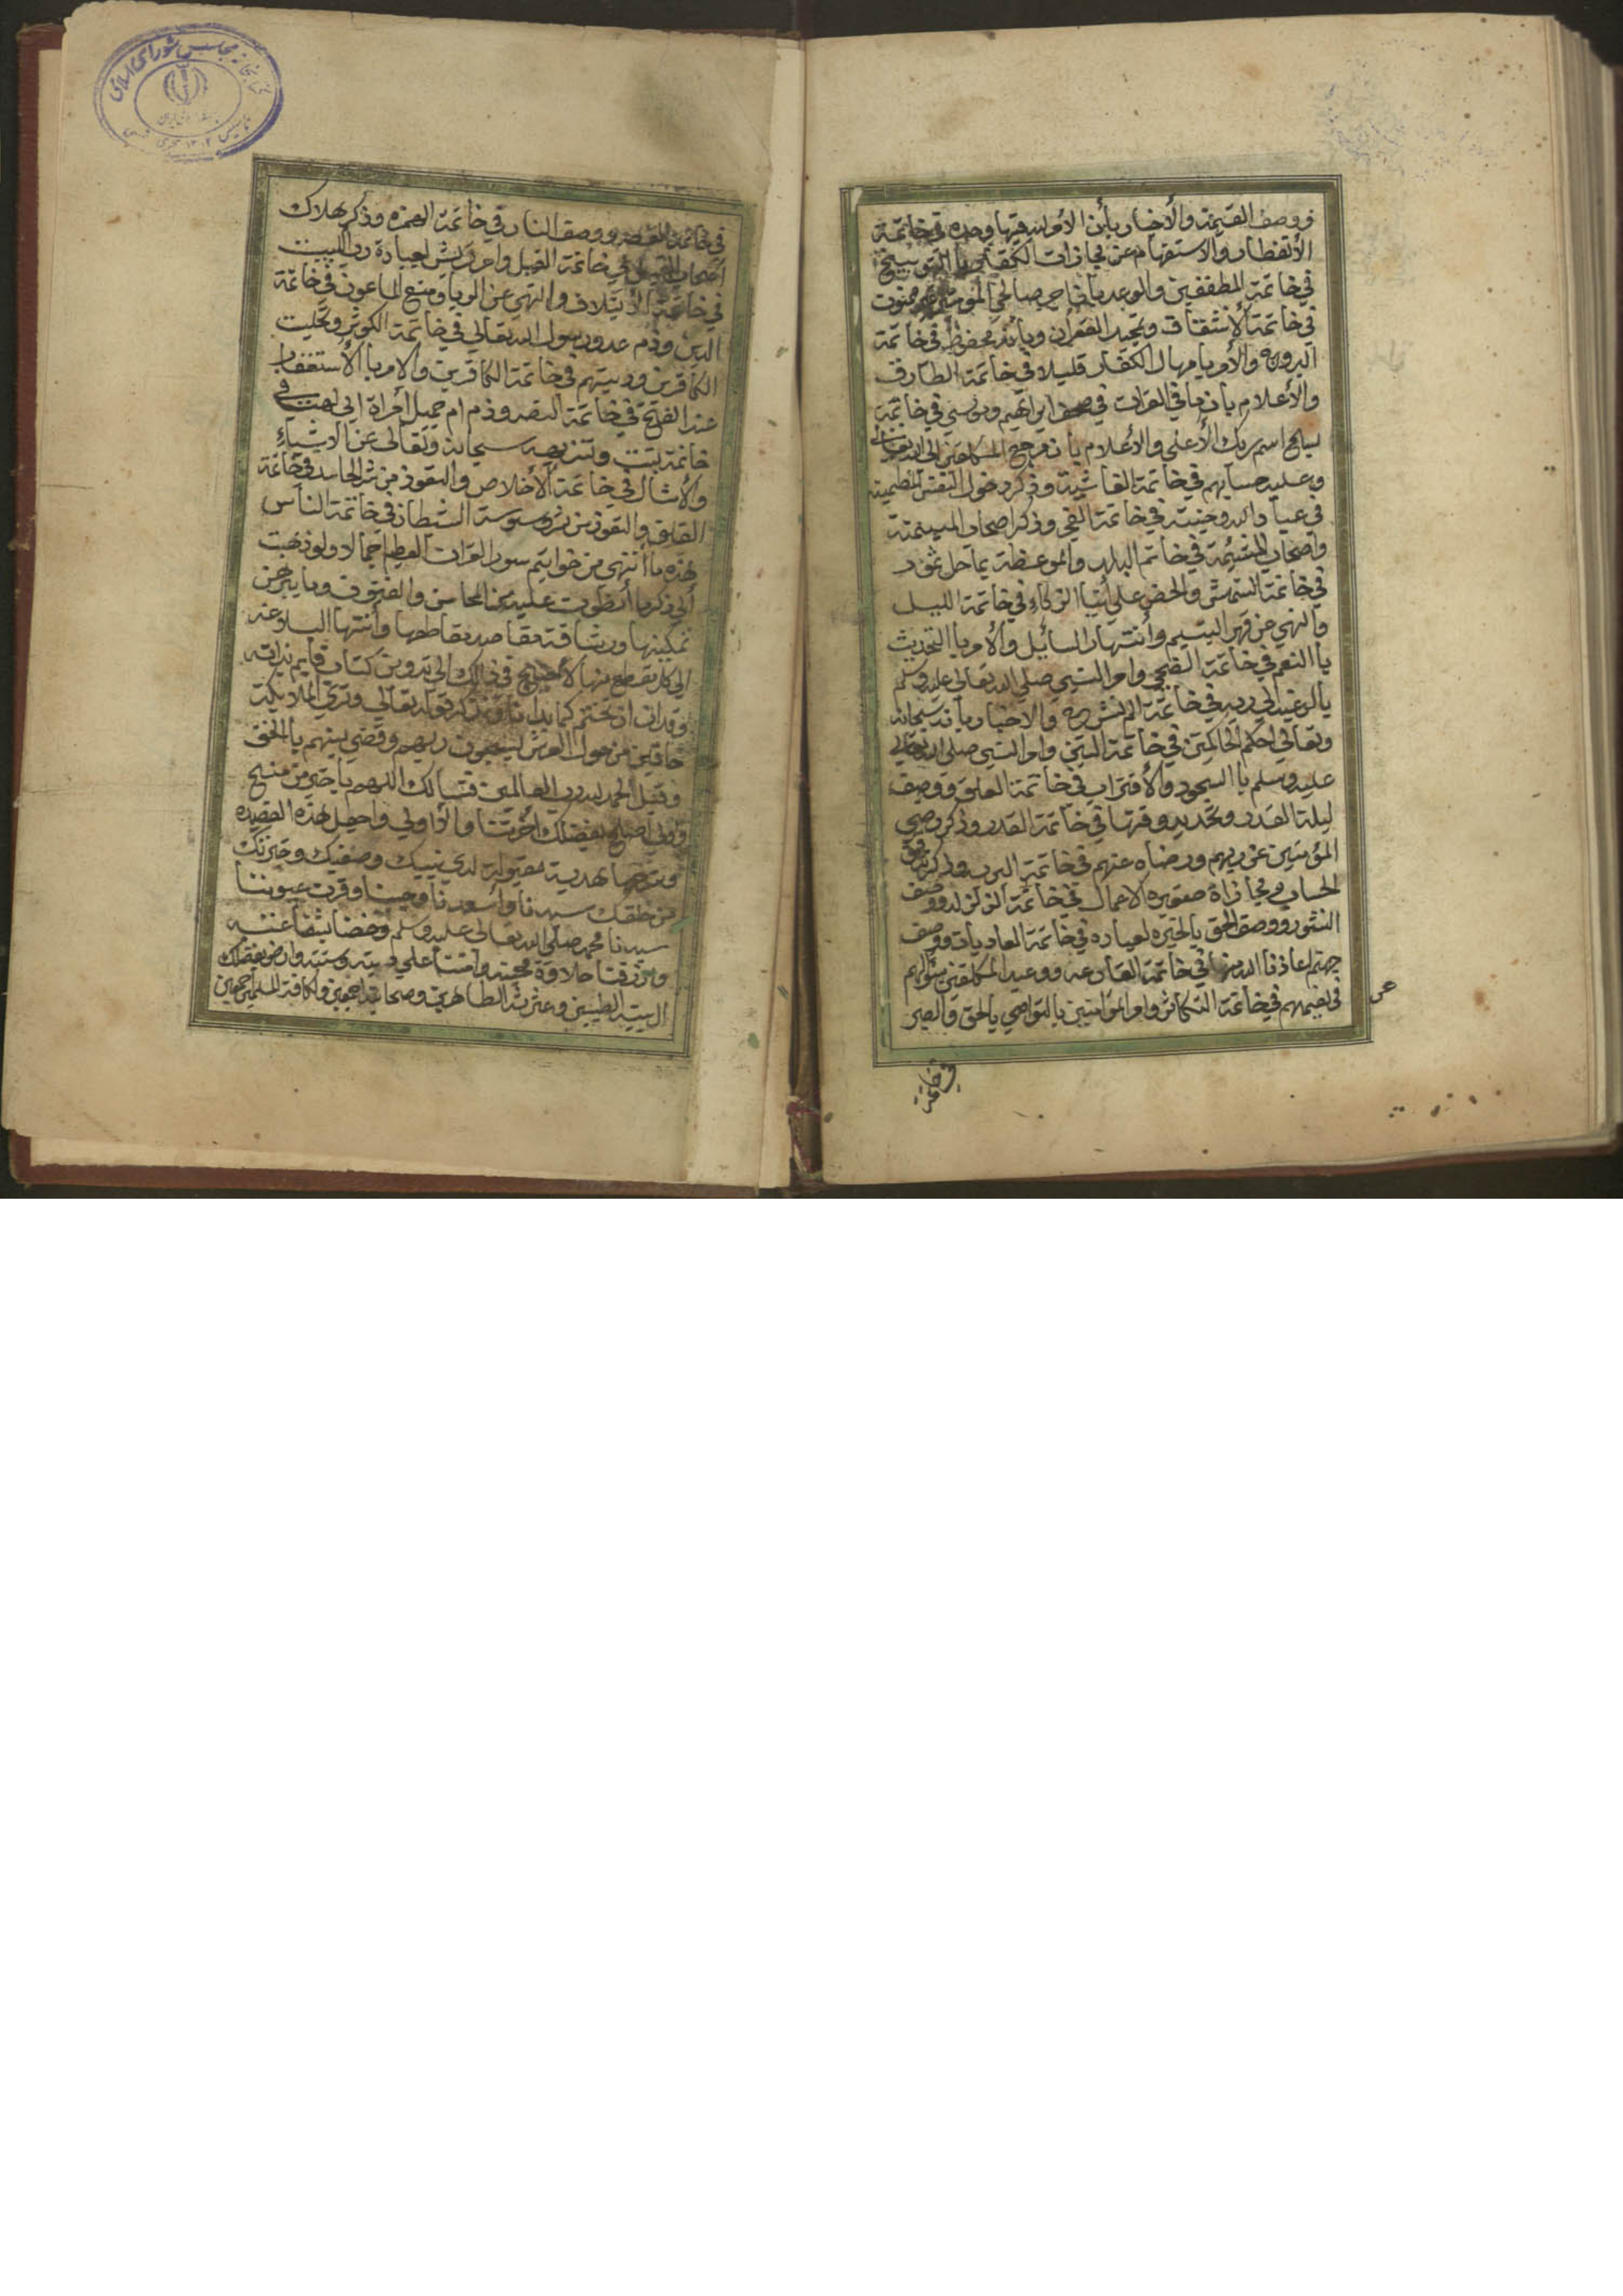 ووصف القيمة والأخبار بأن الأمر لله فيها وحده في خاتمة
الأنفطار والاستفهام عن مجازات الكفار بالتوبيخ
في خاتمة المطففين والوعد بأن اجر صالحي المؤمنين غير ممنون
في خاتمة الأنشقاق وتمجيد القرأن وبأنه محفوظ في خاتمة
البروج والأمر بامهال الكفار قليلا في خاتمة الطارق
والأعلام بان ما في القرات في صحف ابراهيم وموسى في خاتمة
سبح اسم ربك الأعلى والأعلام بان مرجع المكلفين إلى الله تعالى
وعليه حسابهم في خاتمة الغاشية وذكر دخول النفس المطمينة
في عباد الله وجنته في خاتمة الفجر وذكر اصحاب الميمنة
واصحاب المشئمة في خاتم البلد والموعظة بما حل بثمود
في خاتمة الشمس والحض على أيتا الزكاء في خاتمة الليل
والنهي عن قهر اليتيم وأنتهار السايل والأمر باالتحديث
باالنعم في خاتمة الضحى وامر النبي صلى الله تعالى عليه وسلم
بالرغبة الى ربه في خاتمة الم نشرح والاخبار بأنه سبحانه
وتعالى احكم الحاكمين في خاتمة التين وامر النبي صلى الله تعالى
عليه وسلم باالسجود والأقتراب في خاتمة العلق ووصف
ليلة القدر وتحديد وقتها في خاتمة القدر وذكر رضى
المؤمنين عن ربهم ورضاه عنهم في خاتمة البرية وذكر
الحساب ومجازاة صغيره الاعمال في خاتمة الزلزلة ووصف
النشور ووصف الحق بالخيره لعباده في خاتمة العاديات ووصف
جهنم اعاذنا الله منها في خاتمة القارعه ووعيد المكلفين بسؤالهم
في نعيمهم في خاتمة التكاثر وامر المؤمنين بالتواصي بالحق والصبر
في خاتمة
في خاتمة العصر ووصف النار في خاتمة الهمزه وذكر هلاك
اصحاب الفيل في خاتمة الفيل وامر قريش لعبادة رب البيت
في خاتمة الأيتلاف والنهي عن الريا ومنع الماعون في خاتمة
الدين وذم عدو رسول الله تعالى في خاتمة الكوثر وتخليت
الكافرين ودينهم في خاتمة الكافرين والامر باالأستغفار
عند الفتح في خاتمة النصر وذم ام جميل أمراة ابي لهب في
خاتمة تبت وتنزيهه سبحانه وتعالى عن الاشياء
والأمثال في خاتمة الأخلاص والتعوذ من شر الحاسد في خاتمة
الفلق والتعوذ من شر وسوسة الشيطان في خاتمة الناس
هذه ما أنتهى من خواتيم سور القران العظيم اجمالا ولو ذهبت
إلى ذكر ما أنطوت عليه من المحاسن والفنون وما
تمكينها ورشاقة مقاصد مقاطعها وأنتها البلاغه
الى كل مقطع منها لأحتاج في ذالك الى تدوين كتاب قايم بذاته
وقد ان ان نختم كما بدانا ونذكر قوله تعالى وترى الملايكة
حافين من حول العرش يسبحون ربهم وقضي بينهم باالحق
وقيل الحمد لله رب العالمين فنسالك اللهم يا خير من منح
بفضلك اخرتنا والأولى واجعل هذه القصيده
هدية مقبولة لدى نبيك وصفيك وخيرتك
من خلقك سيدنا وأسعدنا وحبيبنا وقرت عيوننا
سيدنا محمد صلى الله تعالى عليه وسلم وخصنا بشفاعته
وارزقنا حلاوة محبته وامتنا على دينه وسنته وارض بفضلك
ال بيته الطيبين وعترته الطاهرين وصحابته اجمعين وكافة المسلمين اجمعين
كتابخانه مجلس شورای اسلامی